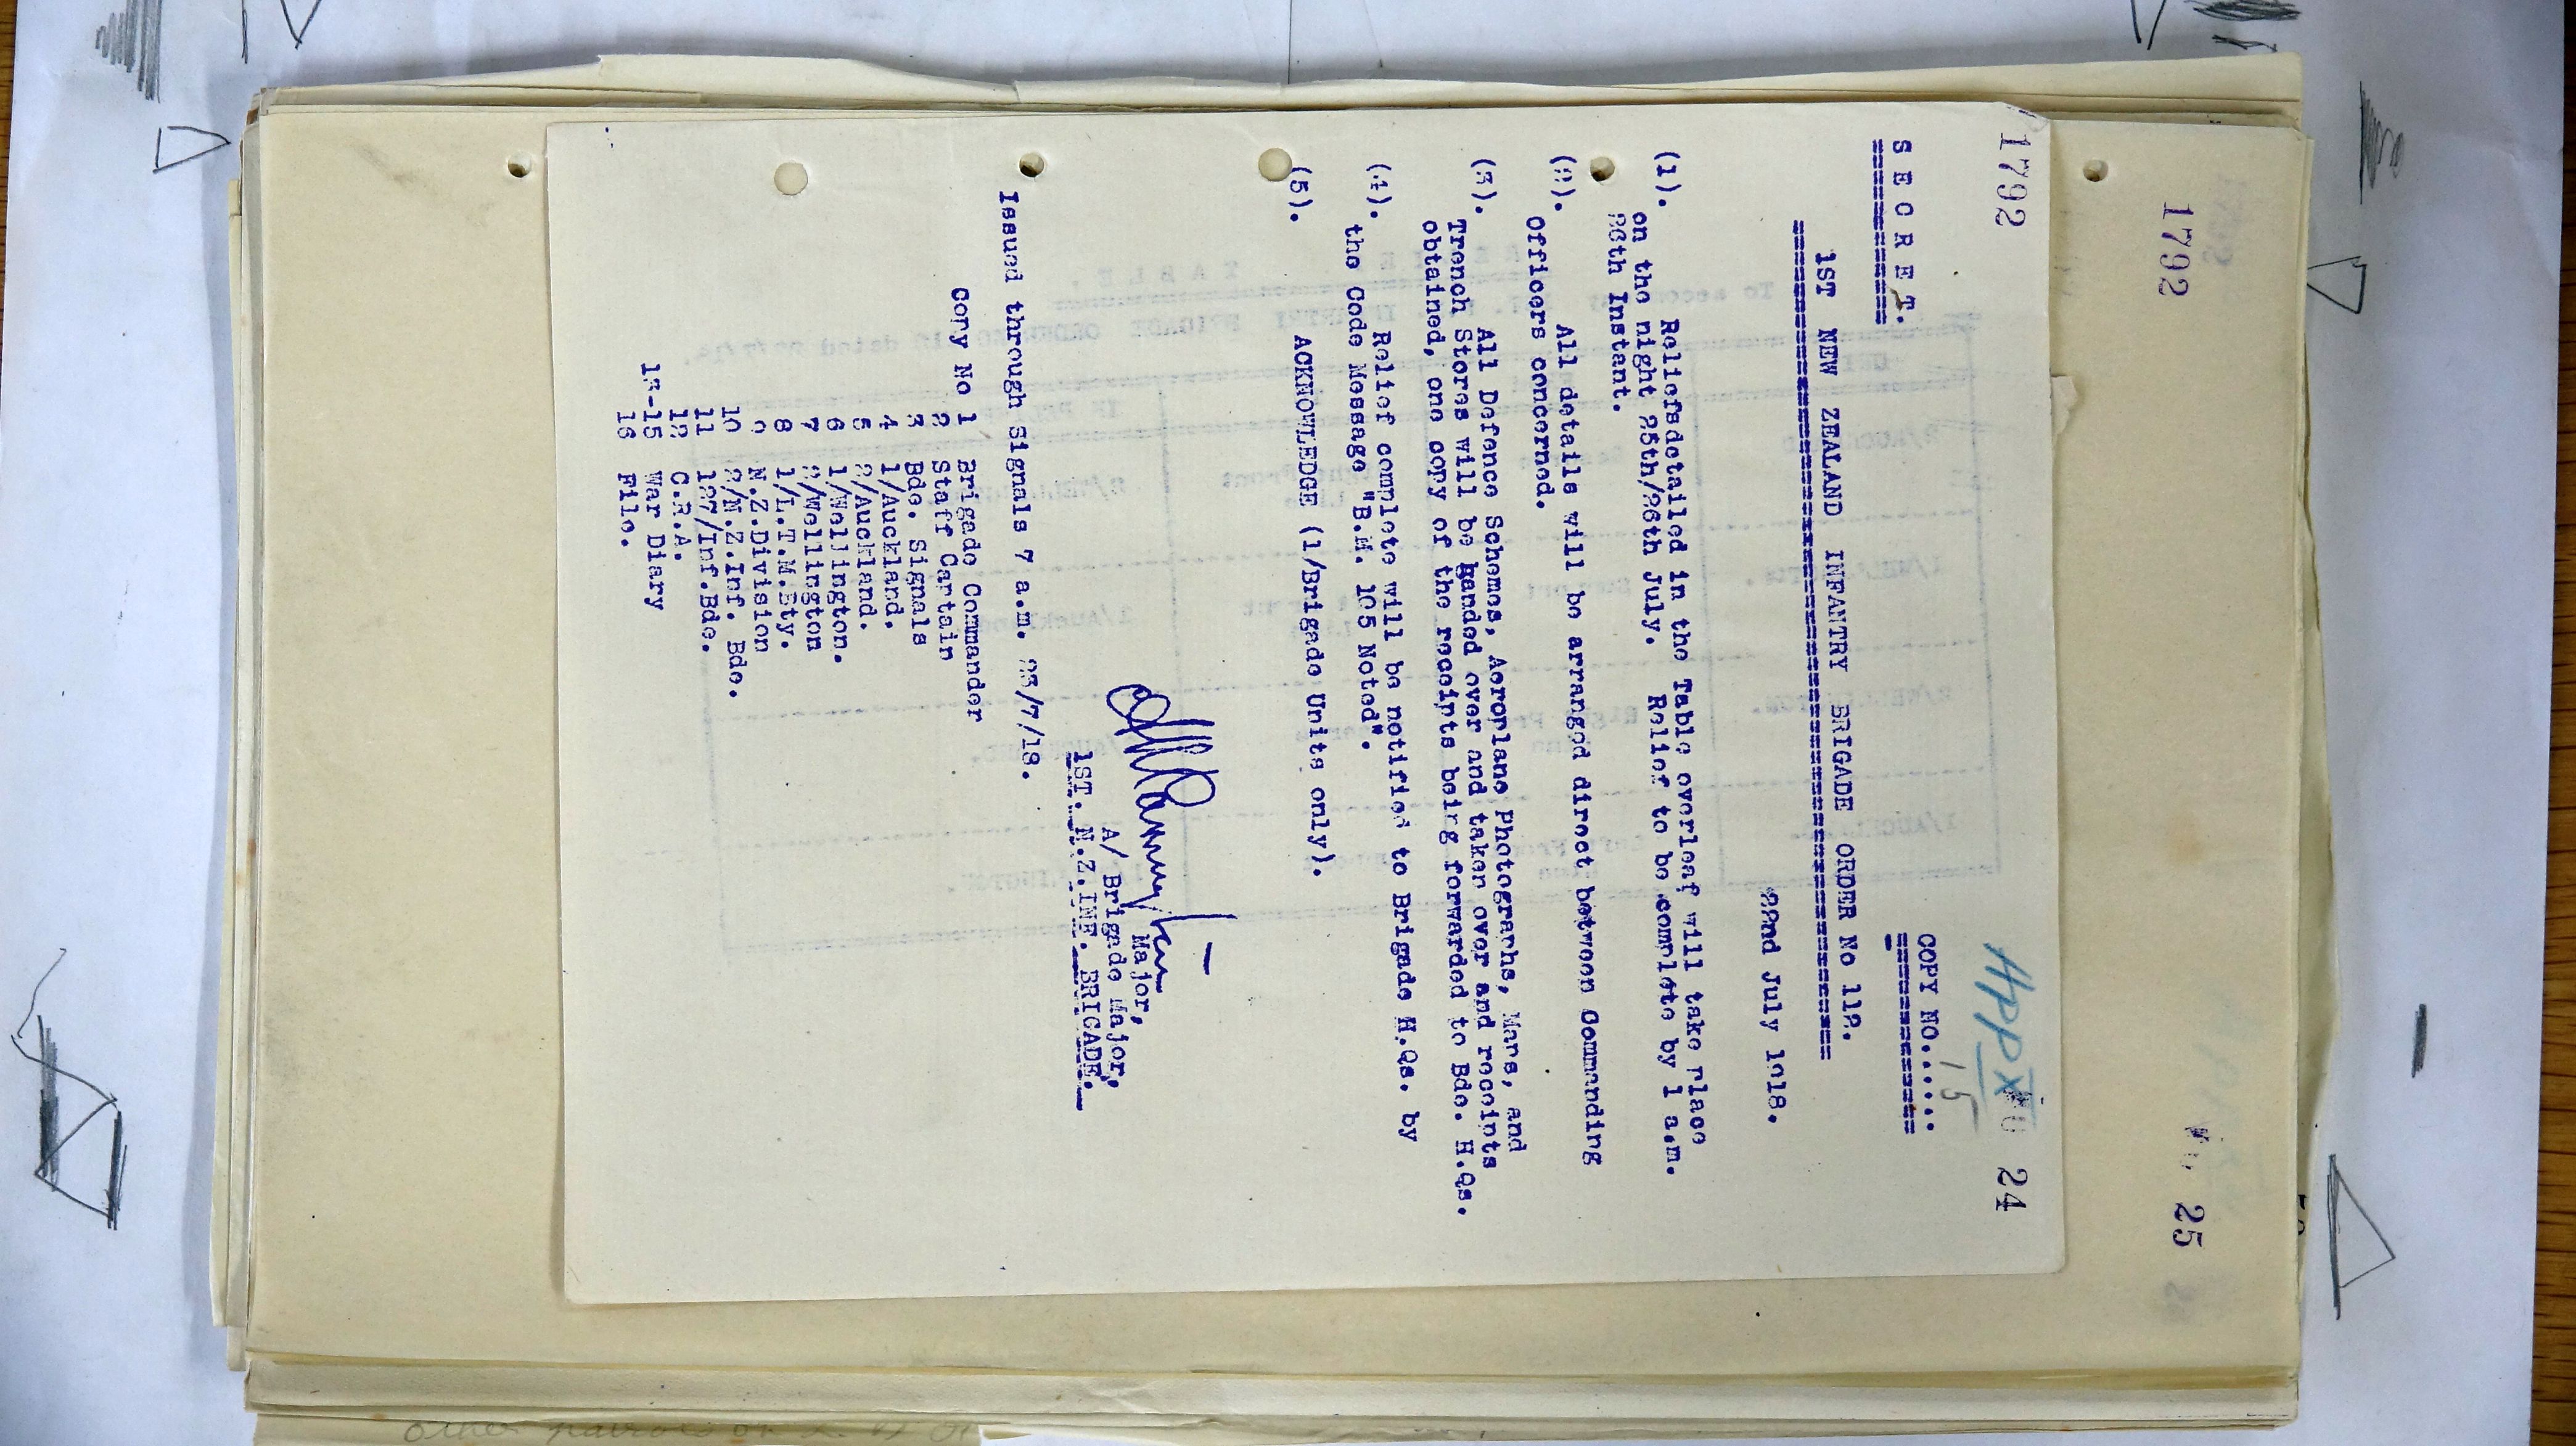 1792
1792
24
25
APP XV
SECRET.
COPY NO.......
15
1ST NEW ZEALAND INFANTRY BRIGADE ORDER No 112.
22nd July 1918.
(1). Reliefsdetailed in the Table overleaf will take place
on the night 25th/26th July. Relief to be complete by 1 a.m.
26th Instant.
(2). All details will be arranged direct between Commanding
Officers concerned.
(3). All Defence Schemes, Aeroplane Photographs, Maps, and
Trench Stores will be handed over and taken over and receipts
obtained, one copy of the receipts being forwarded to Bde. H.Qs.
(4). Relief complete will be notified to Brigade H.Qs. by
the Code Message "B.M. 105 Noted".
(5). ACKNOWLEDGE (1/Brigade Units only).
Major,
A/ Brigade Major,
1ST. N.Z.INF. BRIGADE.
Issued through Signals 7 a.m. 23/7/18.
Copy No 1 Brigade Commander
2 Staff Captain
3 Bde. Signals
4 1/Auckland.
5 2/Auckland.
6 1/Wellington.
7 2/Wellington
8 1/L.T.M.Bty.
9 N.Z.Division
10 2/N.Z.Inf. Bde.
11 127/Inf.Bde.
12 C.R.A.
13-15 War Diary
16 File.